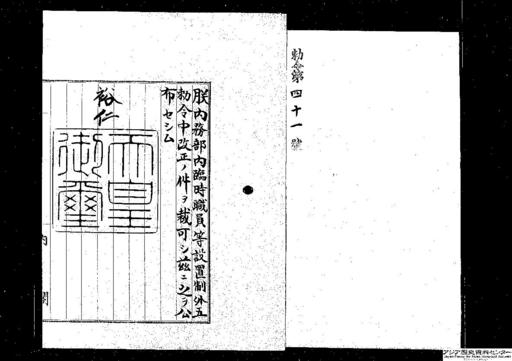 勅令第四十一號
朕内務部内臨時職員等設置制外五
勅令中改正ノ件ヲ裁可シ茲ニ之ヲ公
布セシム
裕仁
天皇
御璽
内閣
アジア歴史資料センター